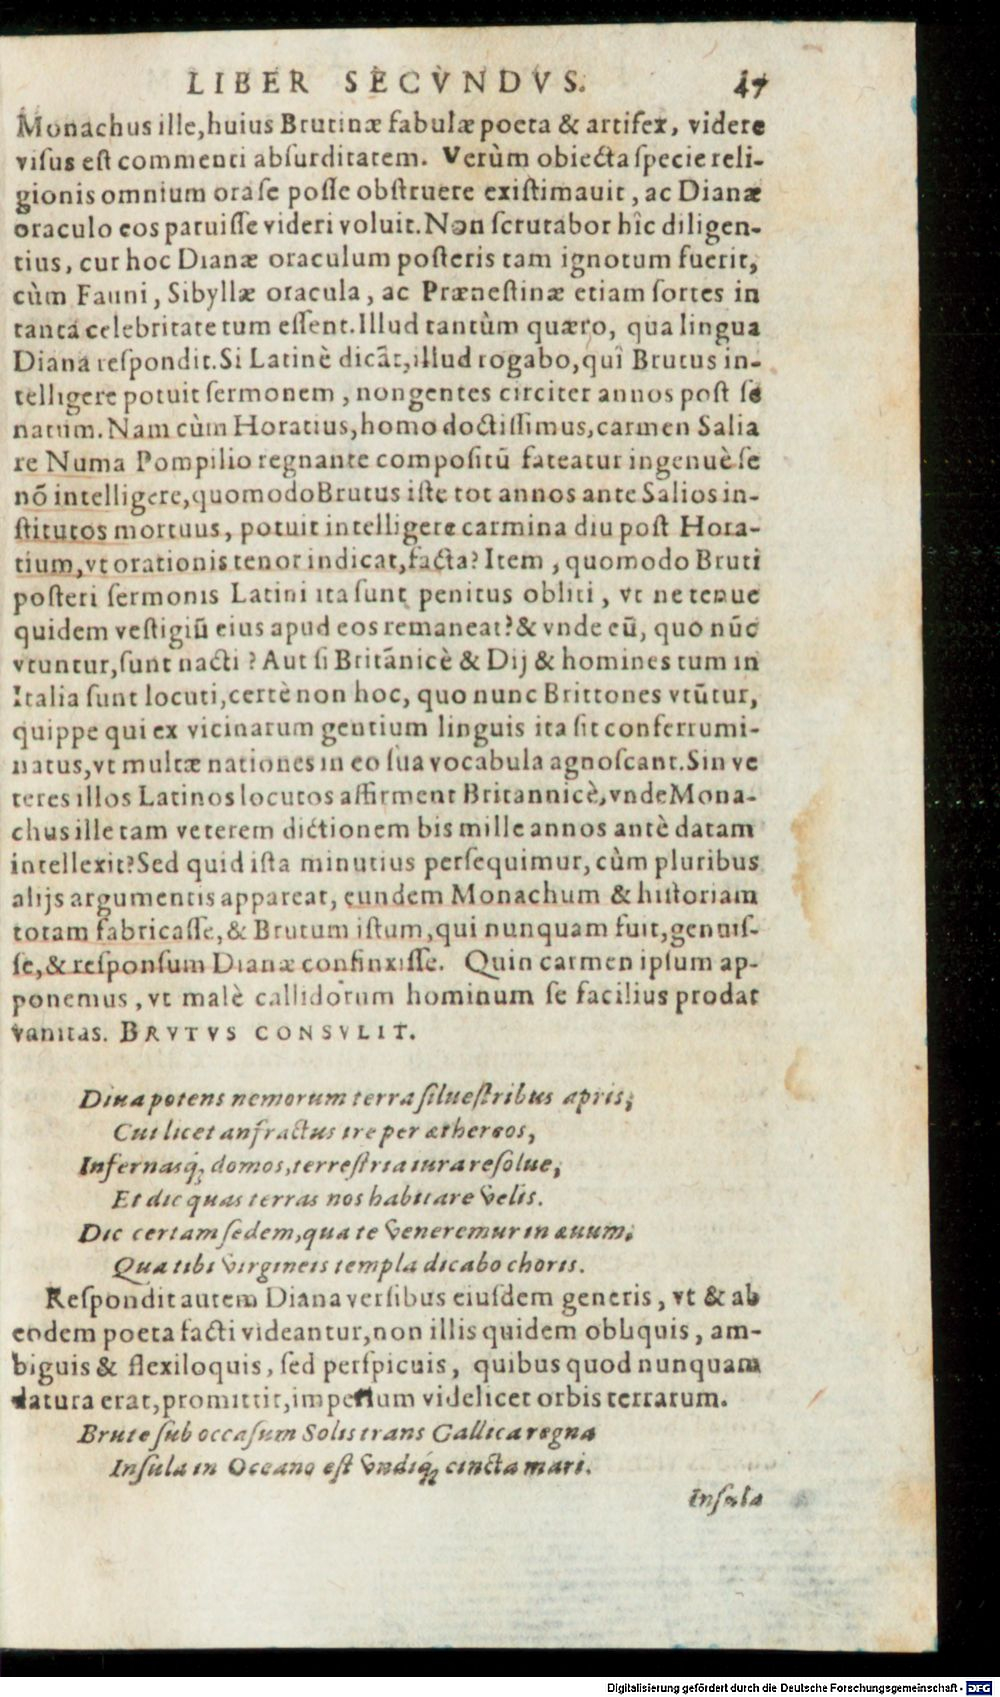 LIBER SECVNDVS. 47
Monachus ille, huius Brutinæ fabulæ poeta & artifex, videre
visus est commenti absurditatem. Verùm obiecta specie reli-
gionis omnium ora se posse obstruere existimauit, ac Dianæ
oraculo eos paruisse videri voluit. Non scrutabor hîc diligen-
tius, cur hoc Dianæ oraculum posteris tam ignotum fuerit,
cùm Fauni, Sibyllæ oracula, ac Prænestinæ etiam sortes in
tanta celebritate tum essent. Illud tantùm quæro, qua lingua
Diana respondit. Si Latinè dicãt, illud rogabo, quî Brutus in-
telligere potuit sermonem, nongentes circiter annos post se
natum. Nam cùm Horatius, homo doctissimus, carmen Salia
re Numa Pompilio regnante compositũ fateatur ingenuè se
nõ intelligere, quomodo Brutus iste tot annos ante Salios in-
stitutos mortuus, potuit intelligere carmina diu post Hora-
tium, vt orationis tenor indicat, facta? Item, quomodo Bruti
posteri sermonis Latini ita sunt penitus obliti, vt ne tenue
quidem vestigiũ eius apud eos remaneat? & vnde eũ, quo nũc
vtuntur, sunt nacti? Aut si Britãnicè & Dij & homines tum in
Italia sunt locuti, certè non hoc, quo nunc Brittones vtũtur,
quippe qui ex vicinarum gentium linguis ita sit conferrumi-
natus, vt multæ nationes in eo sua vocabula agnoscant. Sin ve
teres illos Latinos locutos affirment Britannicè, vnde Mona-
chus ille tam veterem dictionem bis mille annos antè datam
intellexit? Sed quid ista minutius persequimur, cùm pluribus
alijs argumentis appareat, eundem Monachum & historiam
totam fabricasse, & Brutum istum, qui nunquam fuit, genuis-
se, & responsum Dianæ confinxisse. Quin carmen ipsum ap-
ponemus, vt malè callidorum hominum se facilius prodat
vanitas. BRVTVS CONSVLIT.
Diua potens nemorum terra siluestribus apris,
Cui licet anfractus ire per æthereos,
Infernasq́; domos, terrestria iura resolue,
Et dic quas terras nos habitare velis.
Dic certam sedem, qua te veneremur in æuum,
Qua tibi virgineis templa dicabo choris.
Respondit autem Diana versibus eiusdem generis, vt & ab
eodem poeta facti videantur, non illis quidem obliquis, am-
biguis & flexiloquis, sed perspicuis, quibus quod nunquam
datura erat, promittit, imperium videlicet orbis terrarum.
Brute sub occasum Solis trans Gallica regna
Insula in Oceano est vndiq́; cincta mari.
Insula
Digitalisierung gefördert durch die Deutsche Forschungsgemeinschaft - DFG